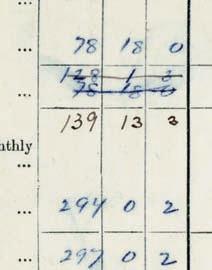 ... 78 18 0
128 1 3
... 78 18 0
139 13 3
nthly
...
... 294 0 2
... 297 0 2